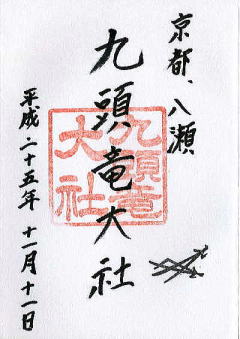 京都、八瀬
九頭竜大社
九頭竜
大社
平成二十五年 十一月十一日